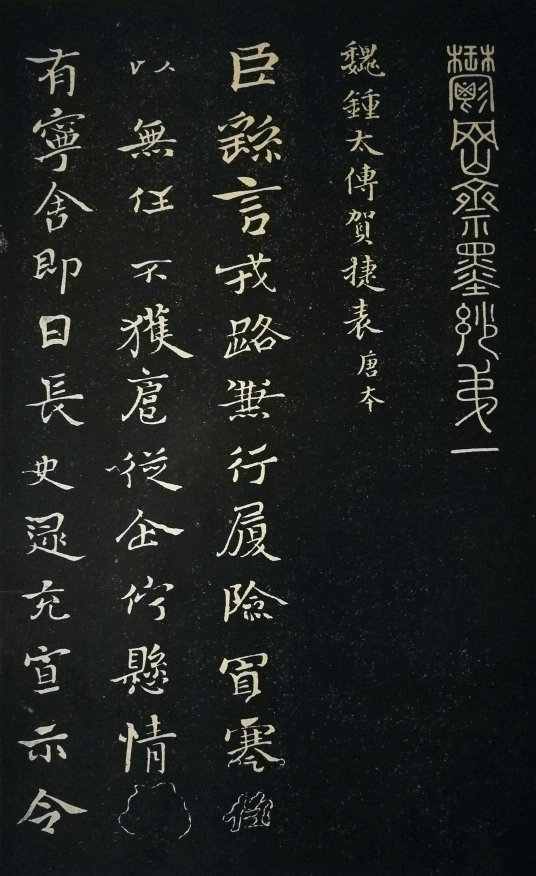 鬱岡齋墨妙弟一
魏鍾太傅賀捷表 唐本
臣繇言戎路兼行履險冒寒臣
以無任不獲扈從企佇懸情
有寧舍即日長史逯充宣示令